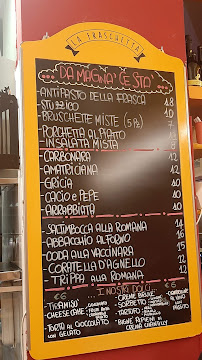 LA FRASCHETTA
DA MAGNA' CE STA'
ANTIPASTO DELLA FRASCA 18
STUZZICO 10
BRUSCHETTE MISTE (5 Pz) 7
PORCHETTA AL PIATTO 10
INSALATA MISTA 8
CARBONARA 12
AMATRICIANA 12
GRICIA 12
CACIO e PEPE 12
ARRABBIATA 10
SALTIMBOCCA ALLA ROMANA 14
ABBACCHIO AL FORNO
CODA ALLA VACCINARA
CORATELLA D'AGNELLO
TRIPPA ALLA ROMANA 12
€6 I NOSTRI DOLCI €6
TIRAMISU'
CHEESECAKE
TORTA AL CIOCCOLATO
CON GELATO
CREME BRULEE
SORBETTO
TARTUFO
BIGNE' RIPIENI DI
CREMA CHANTILLY